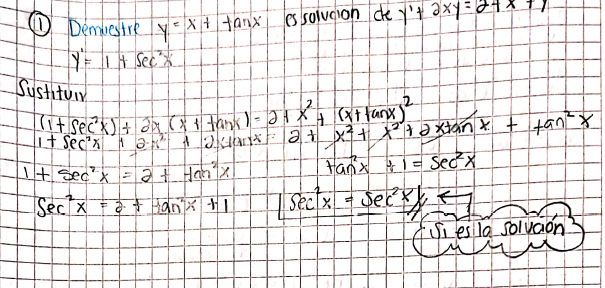 ① Demuestre y = x + tanx es solucion de y' + 2xy = 2 + x² + y²
y' = 1 + Sec²x
Sustituir
(1 + Sec²x) + 2x (x + tanx) = 2 + x² + (x + tanx)²
1 + Sec²x + 2x² + 2xtanx = 2 + x² + x² + 2xtanx + tan²x
1 + Sec²x = 2 + tan²x tan²x + 1 = Sec²x
Sec²x = 2 + tan²x + 1 Sec²x = Sec²x
Si es la solución